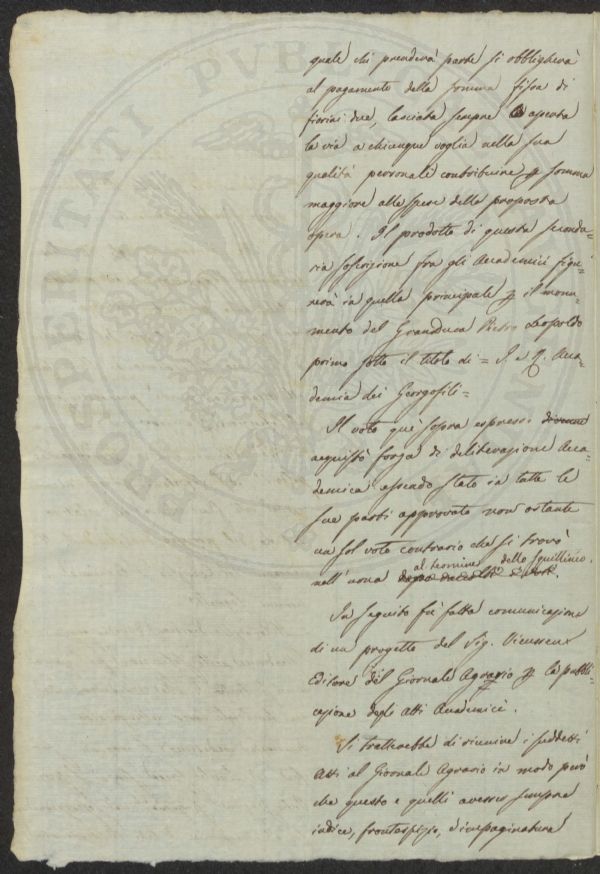 quale chi prenderà parte si obbligherà
al pagamento della somma fissa di
fiorini due, lasciata sempre aperta
la via a chiunque voglia nella sua
qualità personale contribuire p somma
maggiore alle spese della proposta
opera. Il prodotto di questa seconda-
ria soscrizione fra gli Accademici figu-
rerà in quella principale p il monu-
mento del Granduca Pietro Leopoldo
primo sotto il titolo di = I. e R. Acca-
demia dei Georgofili =
Il voto quì sopra espresso divenne
acquistò forza di deliberazione Acca-
demica essendo stato in tutte le
sue parti approvato non ostante
un sol voto contrario che si trovò
al termine dello Squittinio.
nell'urna dopo raccolti i voti.
In seguito fù fatta comunicazione
di un progetto del Sig. Vieusseux
Editore del Giornale Agrario p la pubbli-
cazione degli Atti Accademici.
Si tratterebbe di riunire i suddetti
Atti al Giornale Agrario in modo però
che questo e quelli avesser sempre
indice, frontespizio, e impaginatura
PROSPERITATI PUBL